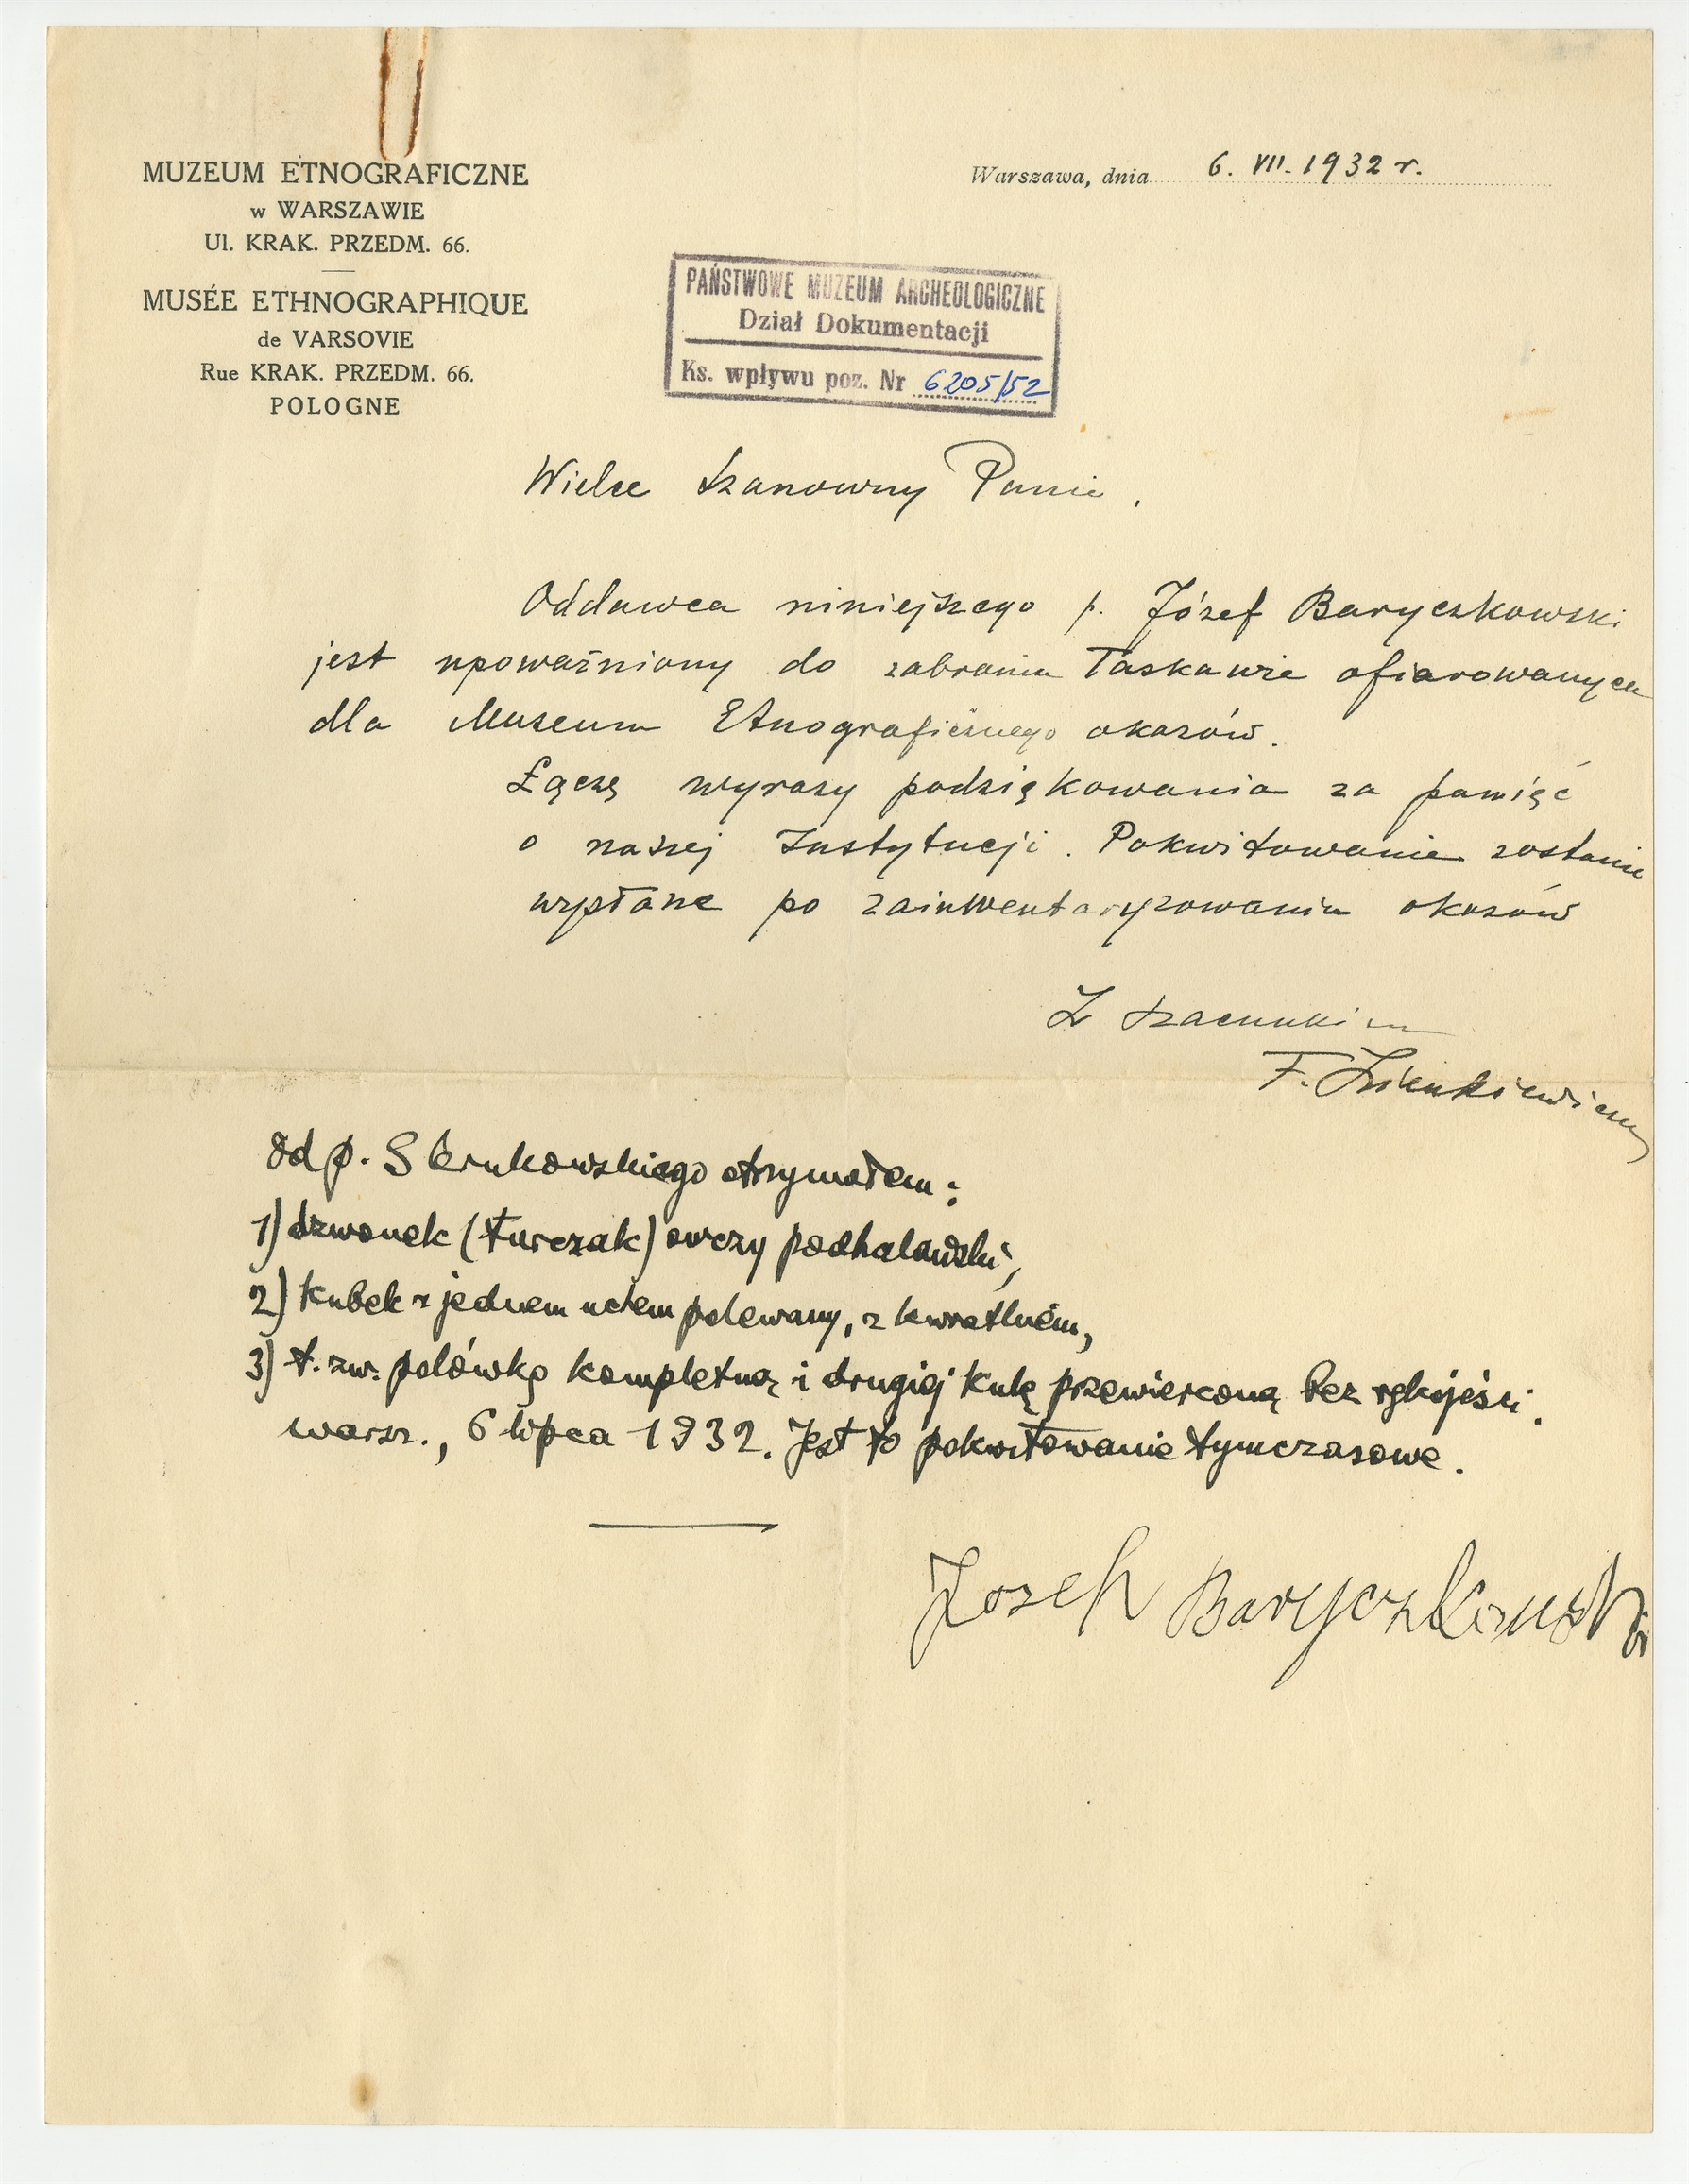 MUZEUM ETNOGRAFICZNE
w WARSZAWIE
Ul. KRAK. PRZEDM. 66.
MUSÉE ETHNOGRAPHIQUE
de VARSOVIE
Rue KRAK. PRZEDM. 66.
POLOGNE
Warszawa, dnia 6. VII. 1932 r.
PAŃSTWOWE MUZEUM ARCHEOLOGICZNE
Dział Dokumentacji
Ks. wpływu poz. Nr 6205/52
Wielce Szanowny Panie,
Oddawca niniejszego p. Józef Baryczkowski
jest upoważniony do zabrania łaskawie ofiarowanych
dla Muzeum Etnograficznego okazów.
Łączę wyrazy podziękowania za pamięć
o naszej Instytucji. Pokwitowanie zostanie
wysłane po zainwentaryzowaniu okazów
Z szacunkiem
F.
Od p. S Krukowskiego otrzymałem:
1) dzwonek (turczak) owczy podhalański,
2) kubek z jednem uchem polewany, z kwiatkiem,
3) t. zw. polówkę kompletną i drugiej kulę przewierconą bez rękojeści.
warsz., 6 lipca 1932. Jest to pokwitowanie tymczasowe.
Józef Baryczkowski